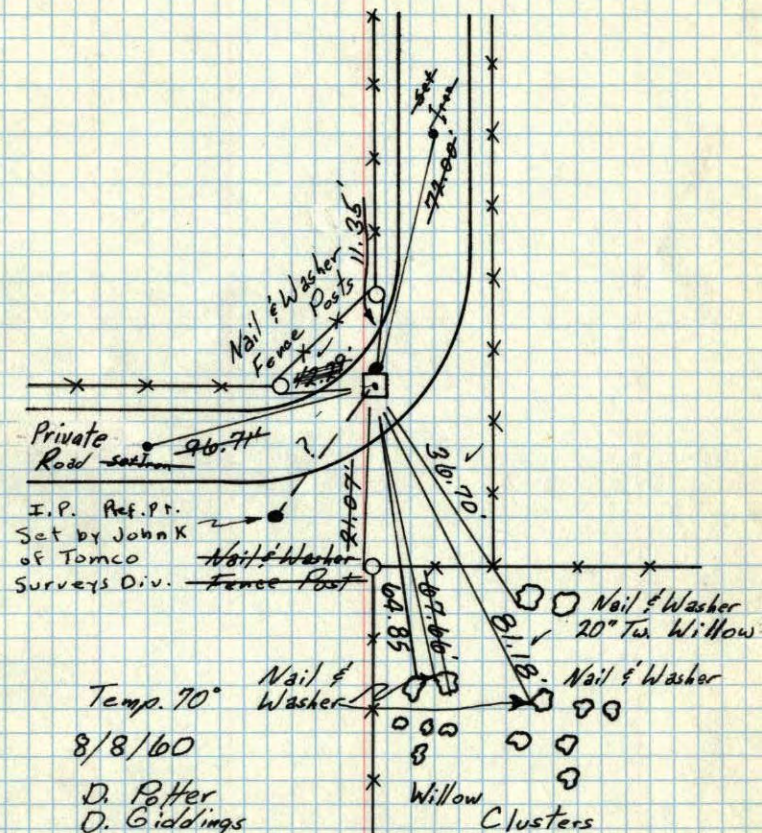 Set
Iron
72.00'
11.35'
Nail & Washer
Fence Posts
42.29
Private
Road Set Iron
96.71'
?
I.P. Ref. Pt.
Set by John K
of Tomco
Surveys Div.
Nail & Washer
Fence Post
36.70
64.85
67.66'
81.18
Nail & Washer
20" Tw. Willow
Nail &
Washer
Nail & Washer
Temp. 70°
8/8/60
D. Potter
D. Giddings
Willow
Clusters